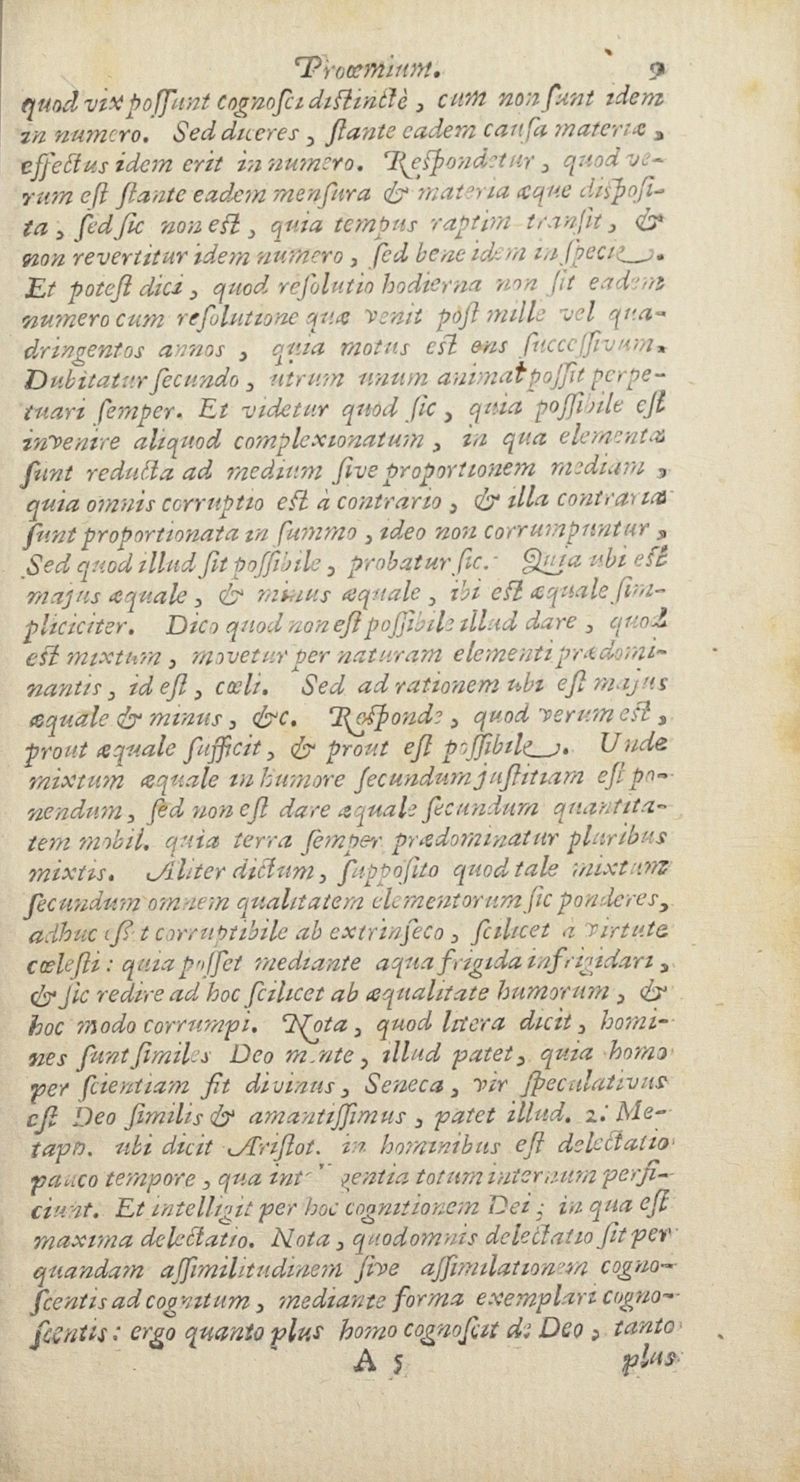 Proœmium. 9
quod vix possunt cognosci distinctè, cum non sunt idem
in numero. Sed diceres, stante eadem causa materiæ,
effectus idem erit in numero. Respondetur, quod ve-
rum est stante eadem mensura & materia æque disposi-
ta, sed sic non est, quia tempus raptim transit, &
non revertitur idem numero, sed bene idem in specie.
Et potest dici, quod resolutio hodierna non sit eadem
numero cum resolutione quæ venit post mille vel qua-
dringentos annos, quia motus est ens successivum.
Dubitatur secundo, utrum unum animal possit perpe-
tuari semper. Et videtur quod sic, quia possibile est
invenire aliquod complexionatum, in qua elementa
sunt reducta ad medium sive proportionem mediam,
quia omnis corruptio est à contrario, & illa contraria
sunt proportionata in summo, ideo non corrumpuntur,
Sed quod illud sit possibile, probatur sic. Quia ubi est
majus æquale, & minus æquale, ibi est æquale sim-
pliciciter. Dico quod non est possibile illud dare, quod
est mixtum, movetur per naturam elementi prædomi-
nantis, id est, cœli. Sed ad rationem ubi est majus
æquale & minus, &c. Responde, quod verum est,
prout æquale sufficit, & prout est possibile. Unde
mixtum æquale in humore secundum justitiam est po-
nendum, sed non est dare æquale secundum quantita-
tem mobil. quia terra semper prædominatur pluribus
mixtis. Aliter dictum, supposito quod tale mixtum
secundum omnem qualitatem elementorum sic ponderes,
adhuc est corruptibile ab extrinseco, scilicet a virtute
cœlesti: quia posset mediante aqua frigida infrigidari,
& sic redire ad hoc scilicet ab æqualitate humorum, &
hoc modo corrumpi. Nota, quod litera dicit, homi-
nes sunt similes Deo mente, illud patet, quia homo
per scientiam fit divinus, Seneca, vir speculativus
est Deo similis & amantissimus, patet illud. 2. Me-
tap. ubi dicit Aristot. in hominibus est delectatio
pauco tempore, qua gentia totum internum perfi-
ciunt. Et intelligit per hoc cognitionem Dei; in qua est
maxima delectatio. Nota, quod omnis delectatio fit per
quandam assimilitudinem sive assimilationem cogno-
scentis ad cognitum, mediante forma exemplari cogno-
scentis: ergo quanto plus homo cognoscit de Deo, tanto
A 5 plus